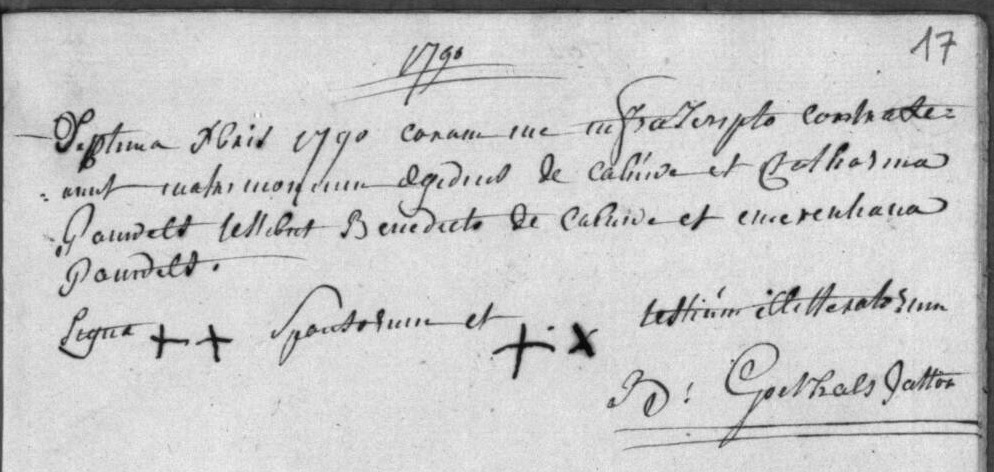 17
1790
Septima Xbris 1790 coram me infrascripto contraxe=
=runt matrimonium Ægidius de Caluwe et Catharina
Pauwels testibus Benedicto de Caluwe et emerentiana
Pauwels.
Signa + + Sponsorum et + x testium illitteratorum
J D: Goethals Pastor